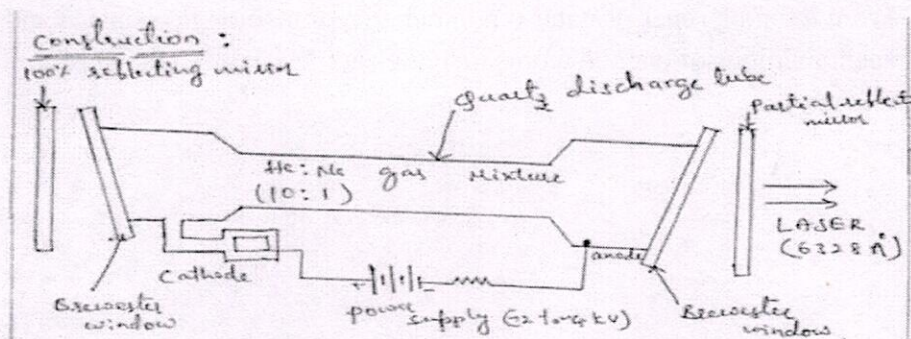 Construction :
100% reflecting mirror
Quartz discharge tube
Partial reflect
mirror
He : Ne gas mixture
(10 : 1)
LASER
(6328 Å)
Cathode
anode
Brewester
window
power supply (2 to 4 kV)
Brewester
window